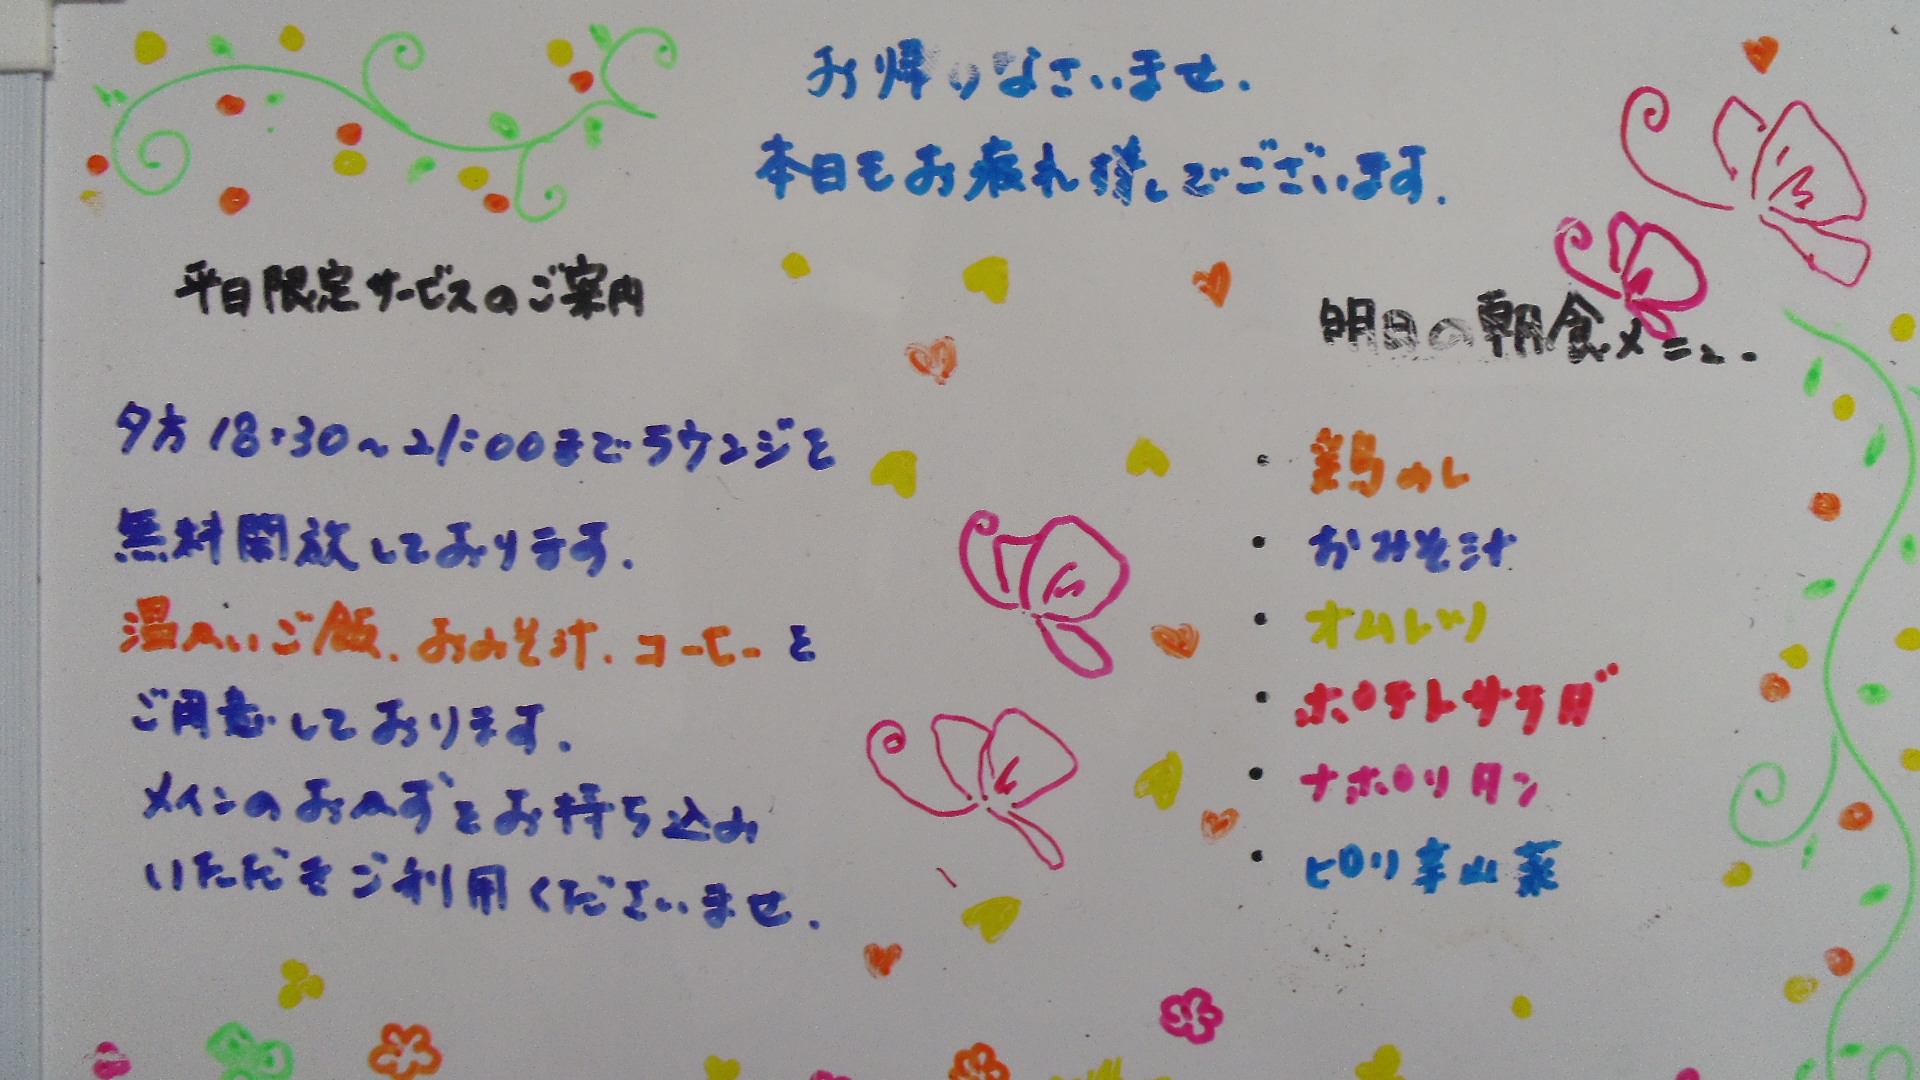 お帰りなさいませ.
本日もお疲れ様でございます.
平日限定サービスのご案内
夕方18:30~21:00までラウンジを
無料開放しております.
温かいご飯.おみそ汁.コーヒーを
ご用意しております.
メインのおかずをお持ち込み
いただきご利用くださいませ.
明日の朝食メニュー
・鶏めし
・おみそ汁
・オムレツ
・ポテトサラダ
・ナポリタン
・ピリ辛山菜